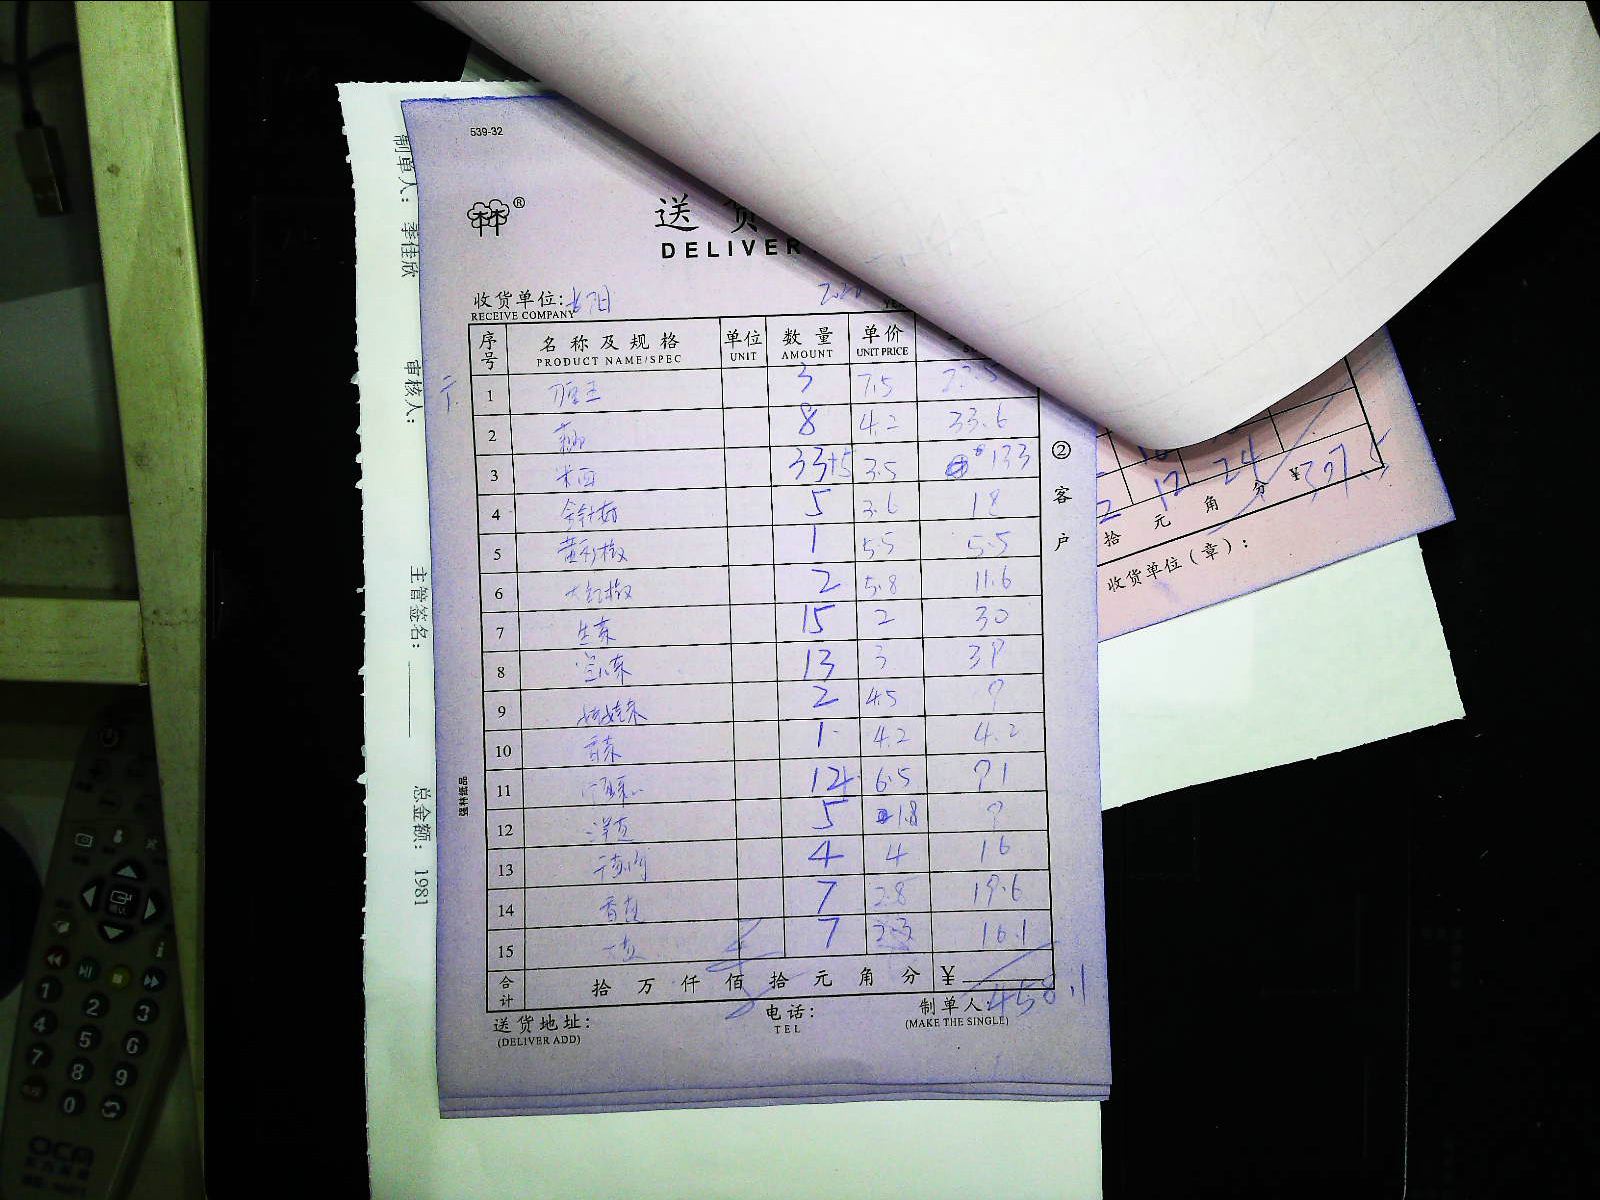 539-32
®
送 货
DELIVER
收货单位:
RECEIVE COMPANY
序号 名称及规格 单位 数量 单价
PRODUCT NAME/SPEC UNIT AMOUNT UNIT PRICE
1 3 7.5 22.5
2 8 4.2 33.6
3 33+5 3.5 133
4 金针菇 5 3.6 18
5 黄彩椒 1 5.5 5.5
6 大红椒 2 5.8 11.6
7 生菜 15 2 30
8 13 3 39
9 娃娃菜 2 4.5 9
10 香菜 1 4.2 4.2
11 14 6.5 91
12 5 1.8 9
13 4 4 16
14 7 2.8 19.6
15 7 2.3 16.1
合计 拾 万 仟 佰 拾 元 角 分 ¥ 458.1
送货地址: 电话: 制单人:
(DELIVER ADD) TEL (MAKE THE SINGLE)
②客户
强林纸品
制单人: 季佳欣 审核人: 主管签名: 总金额: 1981
12 24
拾 元 角 分 ¥307.5
收货单位(章):
1 2 3
4 5 6
7 8 9
0
OCA